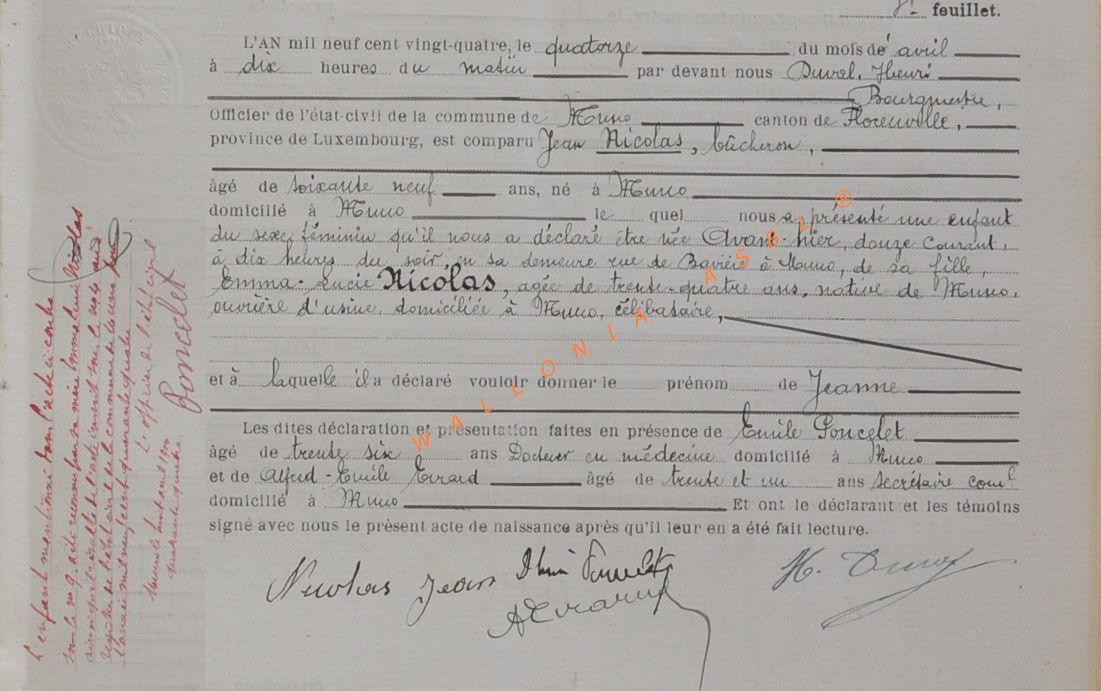 feuillet.
L'AN mil neuf cent vingt-quatre, le quatorze du mois de avril
à dix heures du matin par devant nous Duval, Henri
Bourgmestre,
Officier de l'état-civil de la commune de Muno canton de Florenville,
province de Luxembourg, est comparu Jean Nicolas, bûcheron,
âgé de soixante neuf ans, né à Muno
domicilié à Muno le quel nous a présenté une enfant
du sexe féminin qu'il nous a déclaré être née Avant-hier, douze courant,
à dix heures du soir, en sa demeure rue de à Muno, de sa fille,
Emma-Lucie Nicolas, agée de trente-quatre ans, native de Muno,
ouvrière d'usine, domiciliée à Muno, célibataire,
et à laquelle il a déclaré vouloir donner le prénom de Jeanne
Les dites déclaration et présentation faites en présence de Emile Poncelet
âgé de trente six ans Docteur en médecine domicilié à Muno
et de Alfred-Emile Evrard âgé de trente et un ans secrétaire coml
domicilié à Muno Et ont le déclarant et les témoins
signé avec nous le présent acte de naissance après qu'il leur en a été fait lecture.
Nicolas Jean
H. Duval
AEvrard
L'enfant mentionné dans l'acte ci-contre
sous le no 9, a été reconnu par sa mère Emma Lucie Nicolas
L'officier de l'état civil
Poncelet
WALLONIA ASBL ®